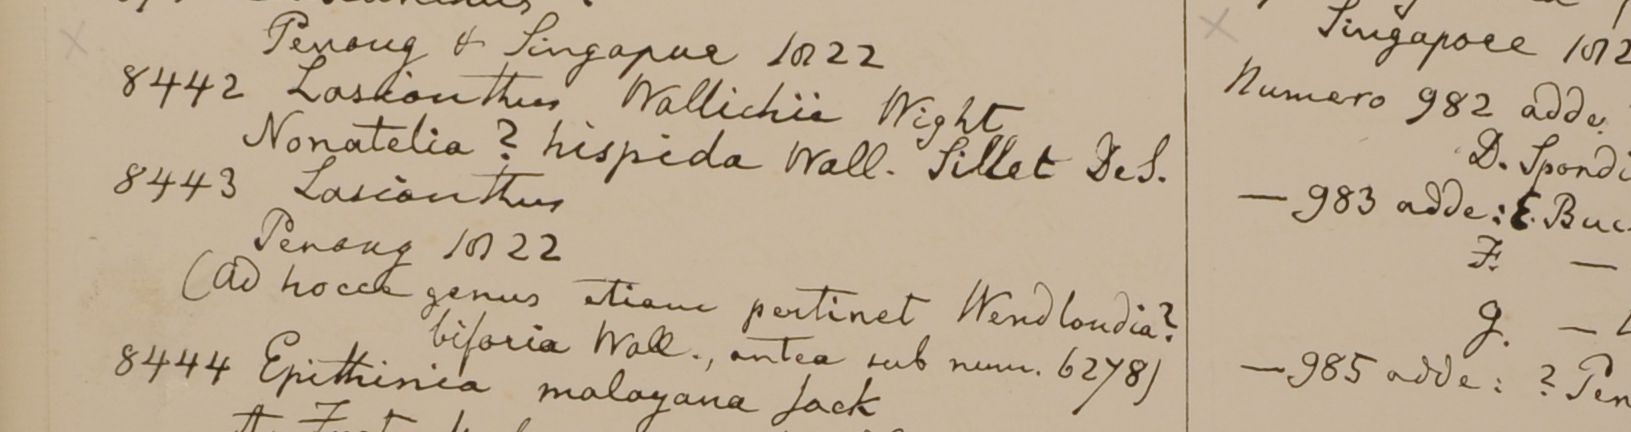 Penang & Singapur 1822
8442 Lasianthus Wallichii Wight
Nonatelia ? hispida Wall. Sillet DeS.
8443 Lasianthus
Penang 1822
(Ad hocce genus etiam pertinet Wendlandia?
biforia Wall., antea sub num. 6278)
8444 Epithinia malayana Jack
Singapore 182
Numero 982 adde.
D. Spondi
— 983 adde: E. Buc
F. —
g. —
— 985 adde: ? Pen